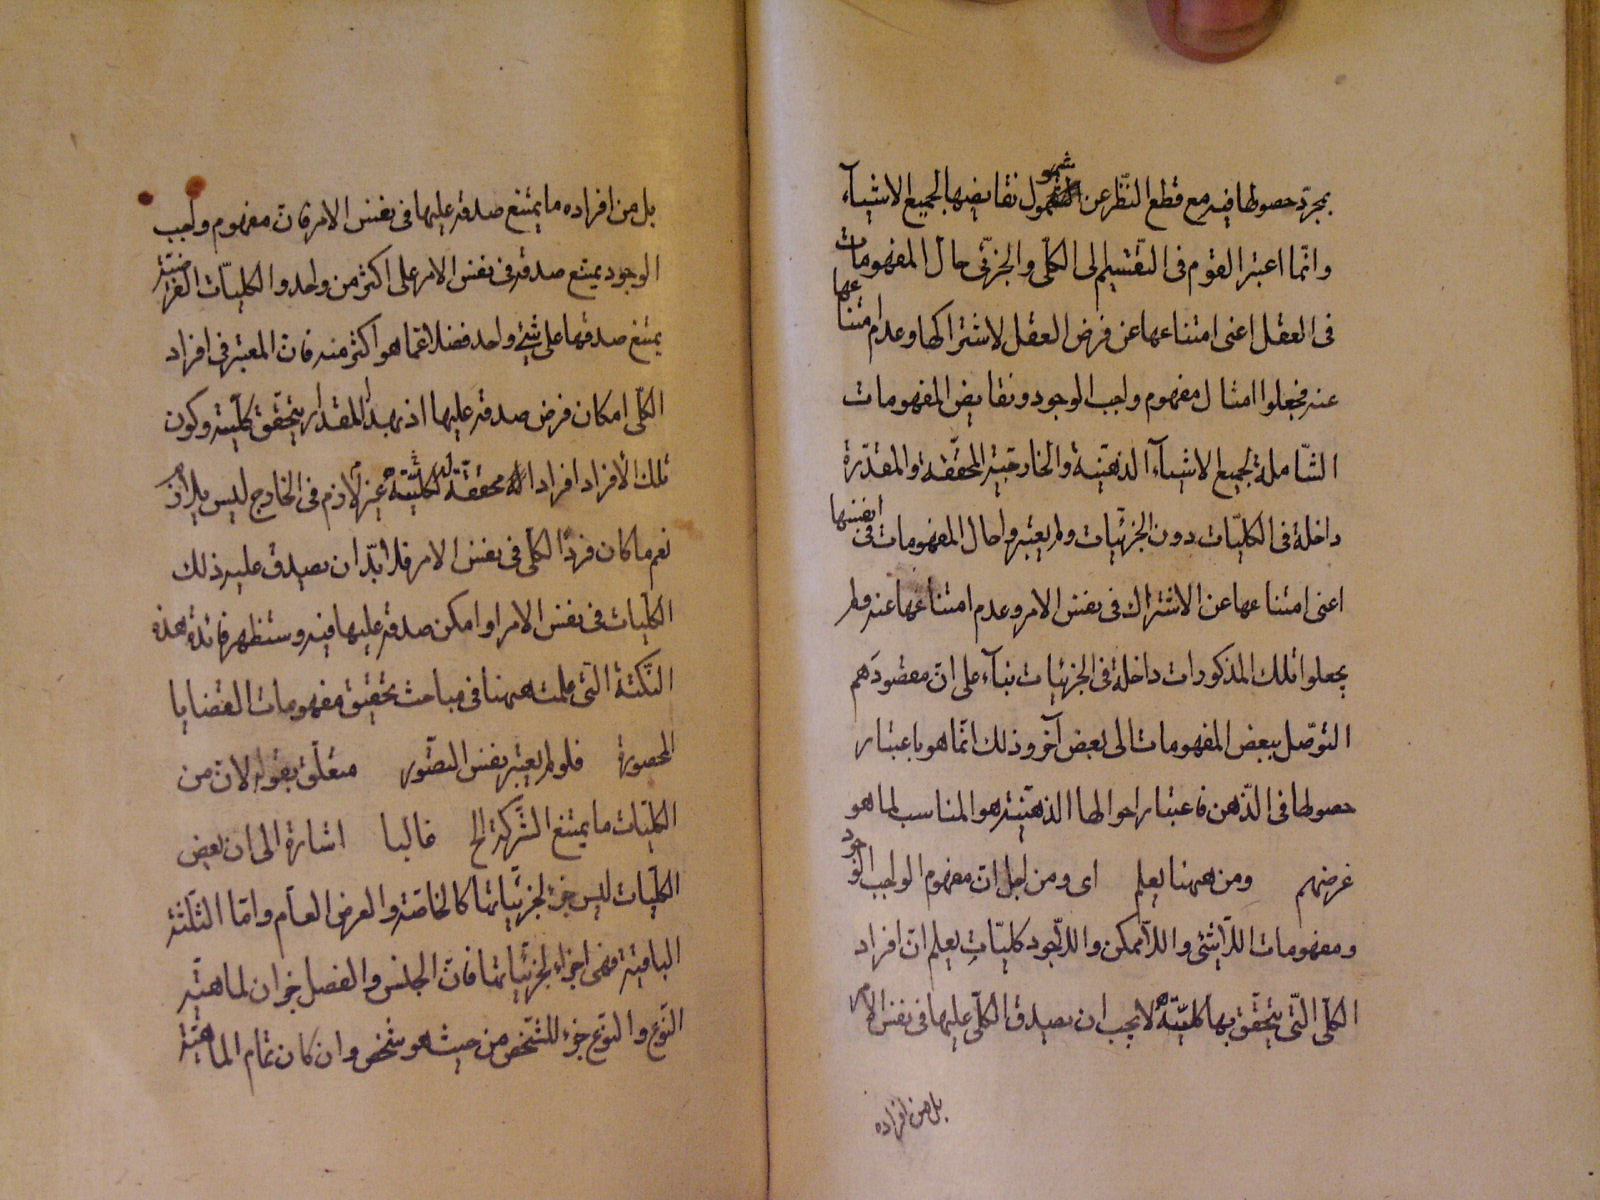 بمجرد حصولها فيه مع قطع النظر عن شمول نقايضها لجميع الاشيآء
وانما اعتبر القوم فى التقسيم الى الكلى والجزئى حال المفهومات
فى العقل اعنى امتناعها عن فرض العقل لاشتراكها وعدم امتناعها
عنه فجعلوا امثال مفهوم واجب الوجود ونقايض المفهومات
الشاملة لجميع الاشيآء الذهنية والخارجية المحققة والمقدرة
داخلة فى الكليات دون الجزئيات ولم يعتبروا حال المفهومات فى انفسها
اعنى امتناعها عن الاشتراك فى نفس الامر وعدم امتناعها عنه ولم
يجعلوا تلك المذكورات داخلة فى الجزئيات بنآء على ان مقصودهم
التوصل ببعض المفهومات الى بعض آخر وذلك انما هو باعتبار
حصولها فى الذهن فاعتبار احوالها الذهنية هو المناسب لما هو
غرضهم ومن ههنا يعلم اى ومن اجل ان مفهوم الواجب الوجود
ومفهومات اللاشئ واللاممكن واللاوجود كليات يعلم ان افراد
الكلى التى يتحقق بها كليته لا يجب ان يصدق الكلى عليها فى نفس الامر
بل من افراده
بل من افراده ما يمتنع صدقه عليها فى نفس الامر فان مفهوم واجب
الوجود يمتنع صدقه فى نفس الامر على اكثر من واحد والكليات الفرضية
يمتنع صدقها على شئ واحد فضلا عما هو اكثر منه فان المعتبر فى افراد
الكلى امكان فرض صدقه عليها اذ بهذا المقدار يتحقق كليته وكون
تلك الافراد افرادا له محققة لكليته غير لازم فى الخارج ليس
نعم ما كان فردا لكلى فى نفس الامر فلا بد ان يصدق عليه ذلك
الكليات فى نفس الامر او امكن صدقه عليها فيه وستظهر فائدة هذه
النكتة التى علمت ههنا فى مباحث تحقيق مفهومات القضايا
المحصورة فلو لم يعتبر نفس التصور متعلق بقوله لان من
الكليات ما يمتنع الشركة الخ غالبا اشارة الى ان بعض
الكليات ليس جزء لجزئياتها كالخاصة والعرض العام واما الثلثة
الباقية فهى اجزاء لجزئياتها فان الجنس والفصل جزان لماهية
النوع والنوع جزء للشخص من حيث هو شخص وان كان تمام الماهية